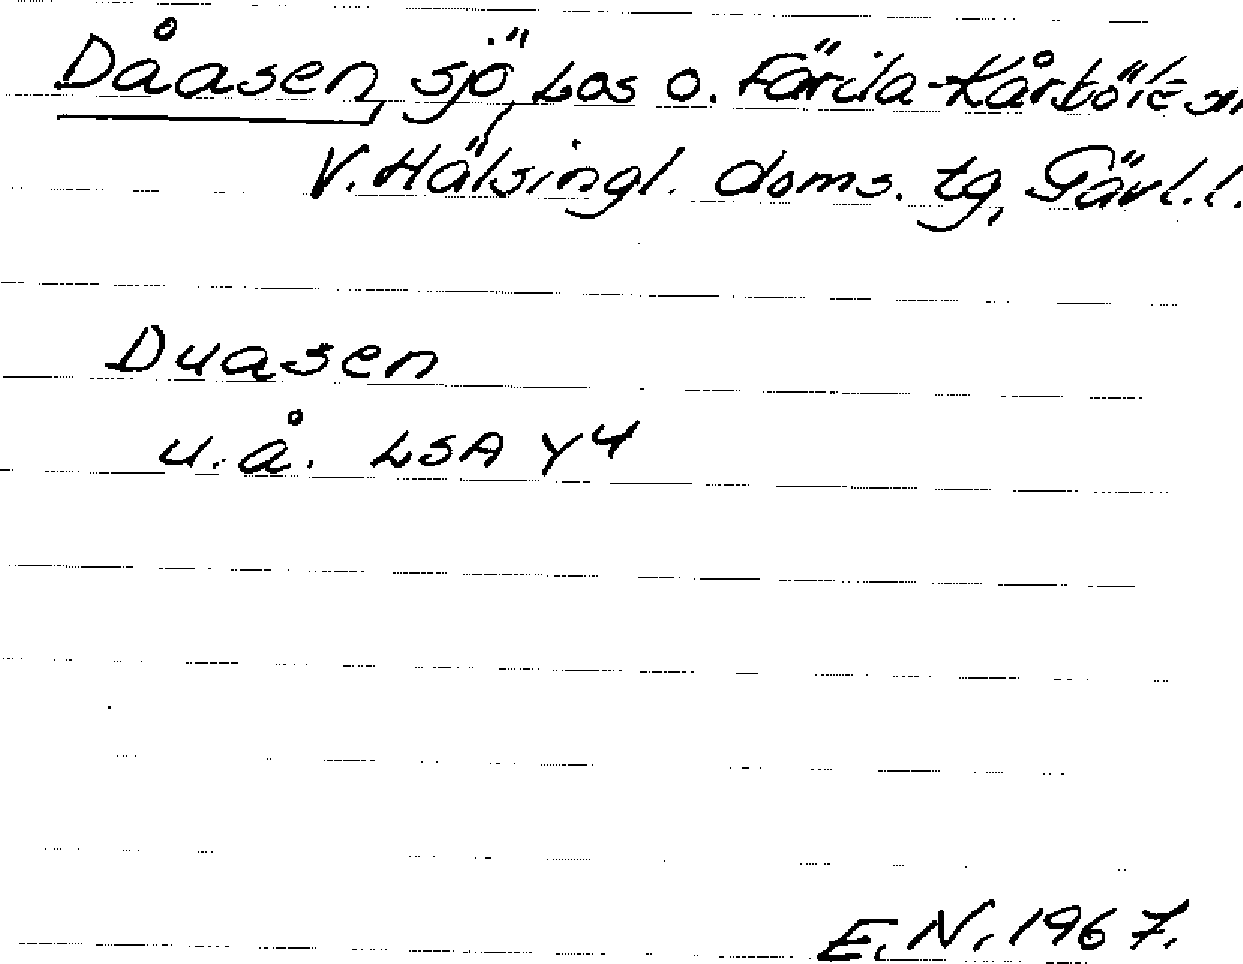 Dåasen, sjö, Los o. Färila-Kårböle sn
V. Hälsingl. doms. tg, Gävl. l.
Duasen
u. å. LSA Y4
E.N. 1967.